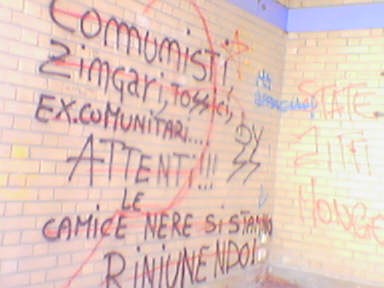 COMMUNISTI,
Zimgari, Tossici,
EX.COMUNITARI....
ATTENTi!!!
DV
SS
LE
CAMICE NERE Si STANNO
RiNiUNENDO!
STATE
ZITTI